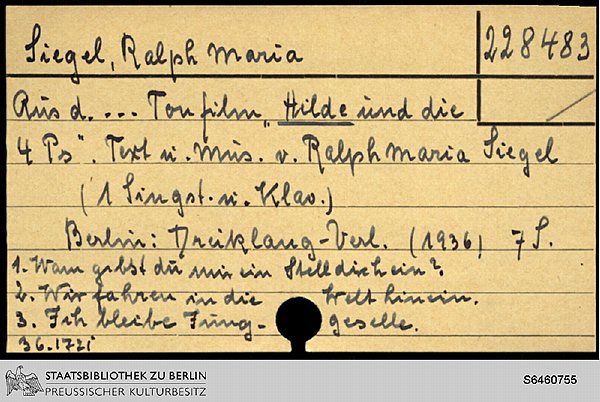 Siegel, Ralph Maria
228483
Aus d. ... Tonfilm „Hilde und die
4 Ps". Text u. Mus. v. Ralph Maria Siegel
(1 Singst. u. Klav.)
Berlin: Dreiklang-Verl. (1936) 7 S.
1. Wann gibst du mir ein Stelldichein?
2. Wir fahren in die Welt hinein.
3. Ich bleibe Jung- geselle.
36.1721
STAATSBIBLIOTHEK ZU BERLIN
PREUSSISCHER KULTURBESITZ
S6460755